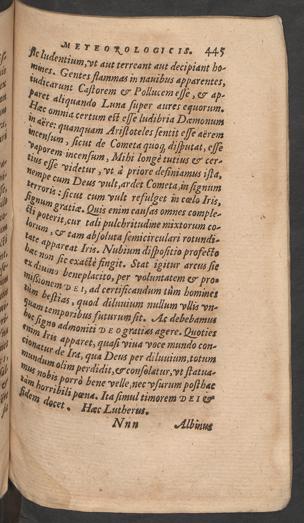 METEOROLOGICIS. 445
sic ludentium, vt aut terreant aut decipiant ho-
mines. Gentes flammas in nauibus apparentes,
iudicarunt Castorem & Pollucem esse, & ap-
paret aliquando Luna super aures equorum.
Hæc omnia certum est esse ludibria Dæmonum
in aëre: quanquam Aristoteles sentit esse aërem
incensum, sicut de Cometa quoq; disputat, esse
vaporem incensum, Mihi longè tutius & cer-
tius esse videtur, vt à priore definiamus ista,
nempe cum Deus vult, ardet Cometa, in signum
terroris: sicut cum vult refulget in cœlo Iris,
signum gratiæ. Quis enim causas omnes comple-
cti poterit, cur tali pulchritudine mixtorum co-
lorum, & tam absoluta semicirculari rotundi-
tate appareat Iris. Nubium dispositio profectò
hæc non sic exactè fingit. Stat igitur arcus sic
ex diuino beneplacito, per voluntatem & pro-
missionem DEI, ad certificandum tùm homines
tùm bestias, quod diluuium nullum vllis vn-
quam temporibus futurum sit. Ac debebamus
hoc signo admoniti DEO gratias agere. Quoties
enim Iris apparet, quasi viua voce mundo con-
cionatur de Ira, qua Deus per diluuium, totum
mundum olim perdidit, & consolatur, vt statua-
mus nobis porrò bene velle, nec vsurum posthac
tàm horribili pœna. Ita simul timorem DEI &
fidem docet. Hæc Lutherus.
Nnn Albinus